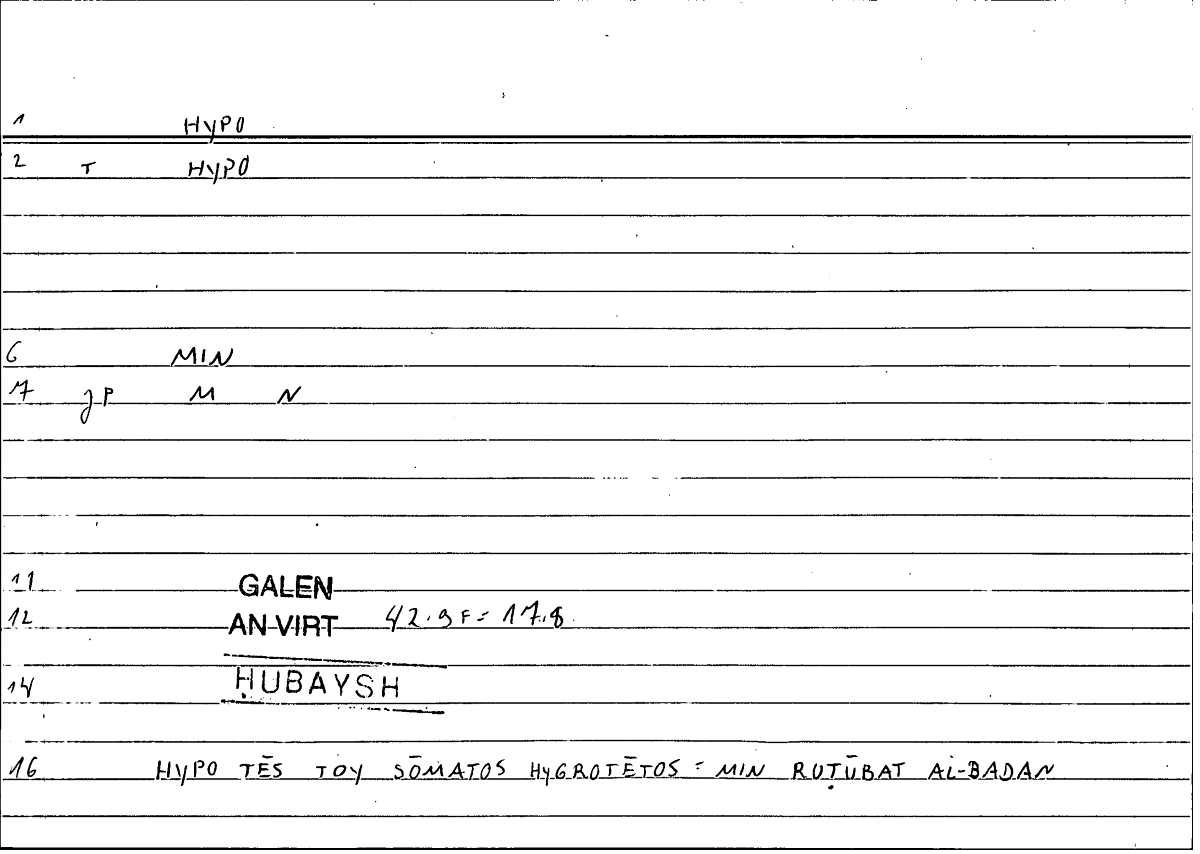 1 HYPO
2 T HYPO
6 MIN
7 JP M N
11 GALEN
12 AN VIRT 42.9 F = 17.8
14 ḤUBAYSH
16 HYPO TĒS TOY SŌMATOS HYGROTĒTOS = MIN RUṬŪBAT AL-BADAN